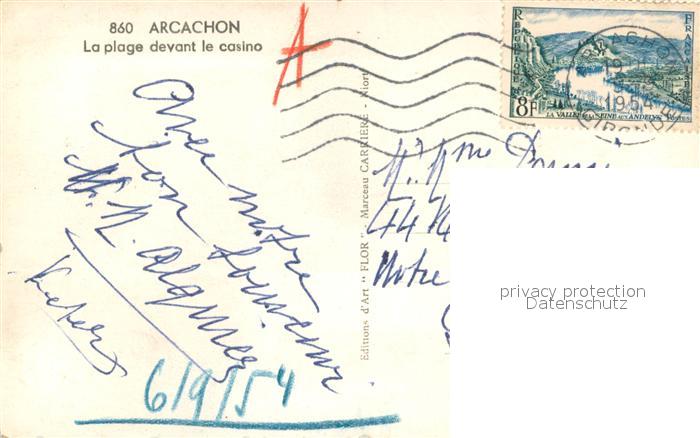 860 ARCACHON
La plage devant le casino
Avec notre
bon souvenir
M. R. Alquier
6/9/54
Editions d'Art "FLOR" - Marceau CARRIÈRE - Niort
REPUBLIQUE FRANÇAISE
8F
LA VALLÉE DE LA SEINE AUX ANDELYS POSTES
ARCACHON
19
1954
GIRONDE
M. Mme
44
Notre
privacy protection
Datenschutz
A